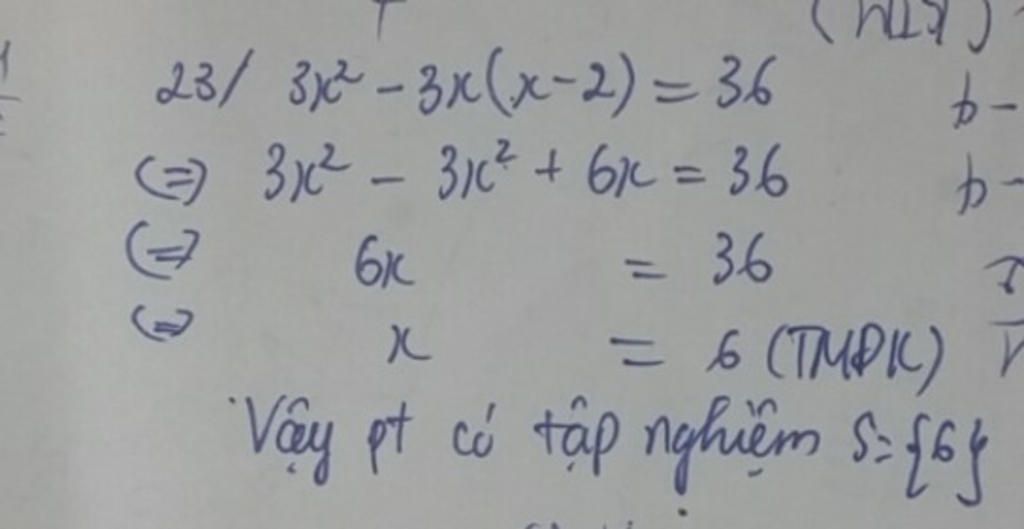 (KTM)
23/ 3x² - 3x(x-2) = 36
(=) 3x² - 3x² + 6x = 36
(=) 6x = 36
(=) x = 6 (TMĐK)
Vậy pt có tập nghiệm S={6}